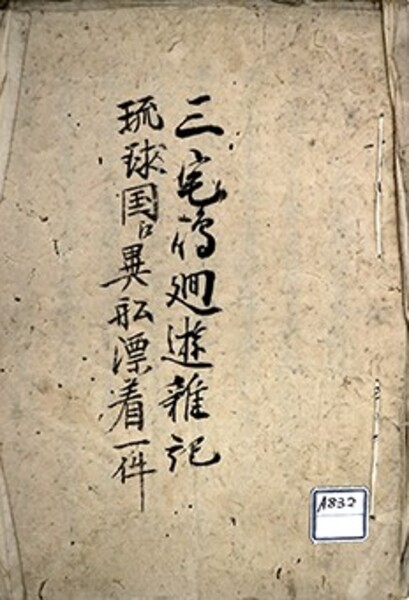 三宅嶋廻遊雜記
琉球国異舩漂着一件
A832